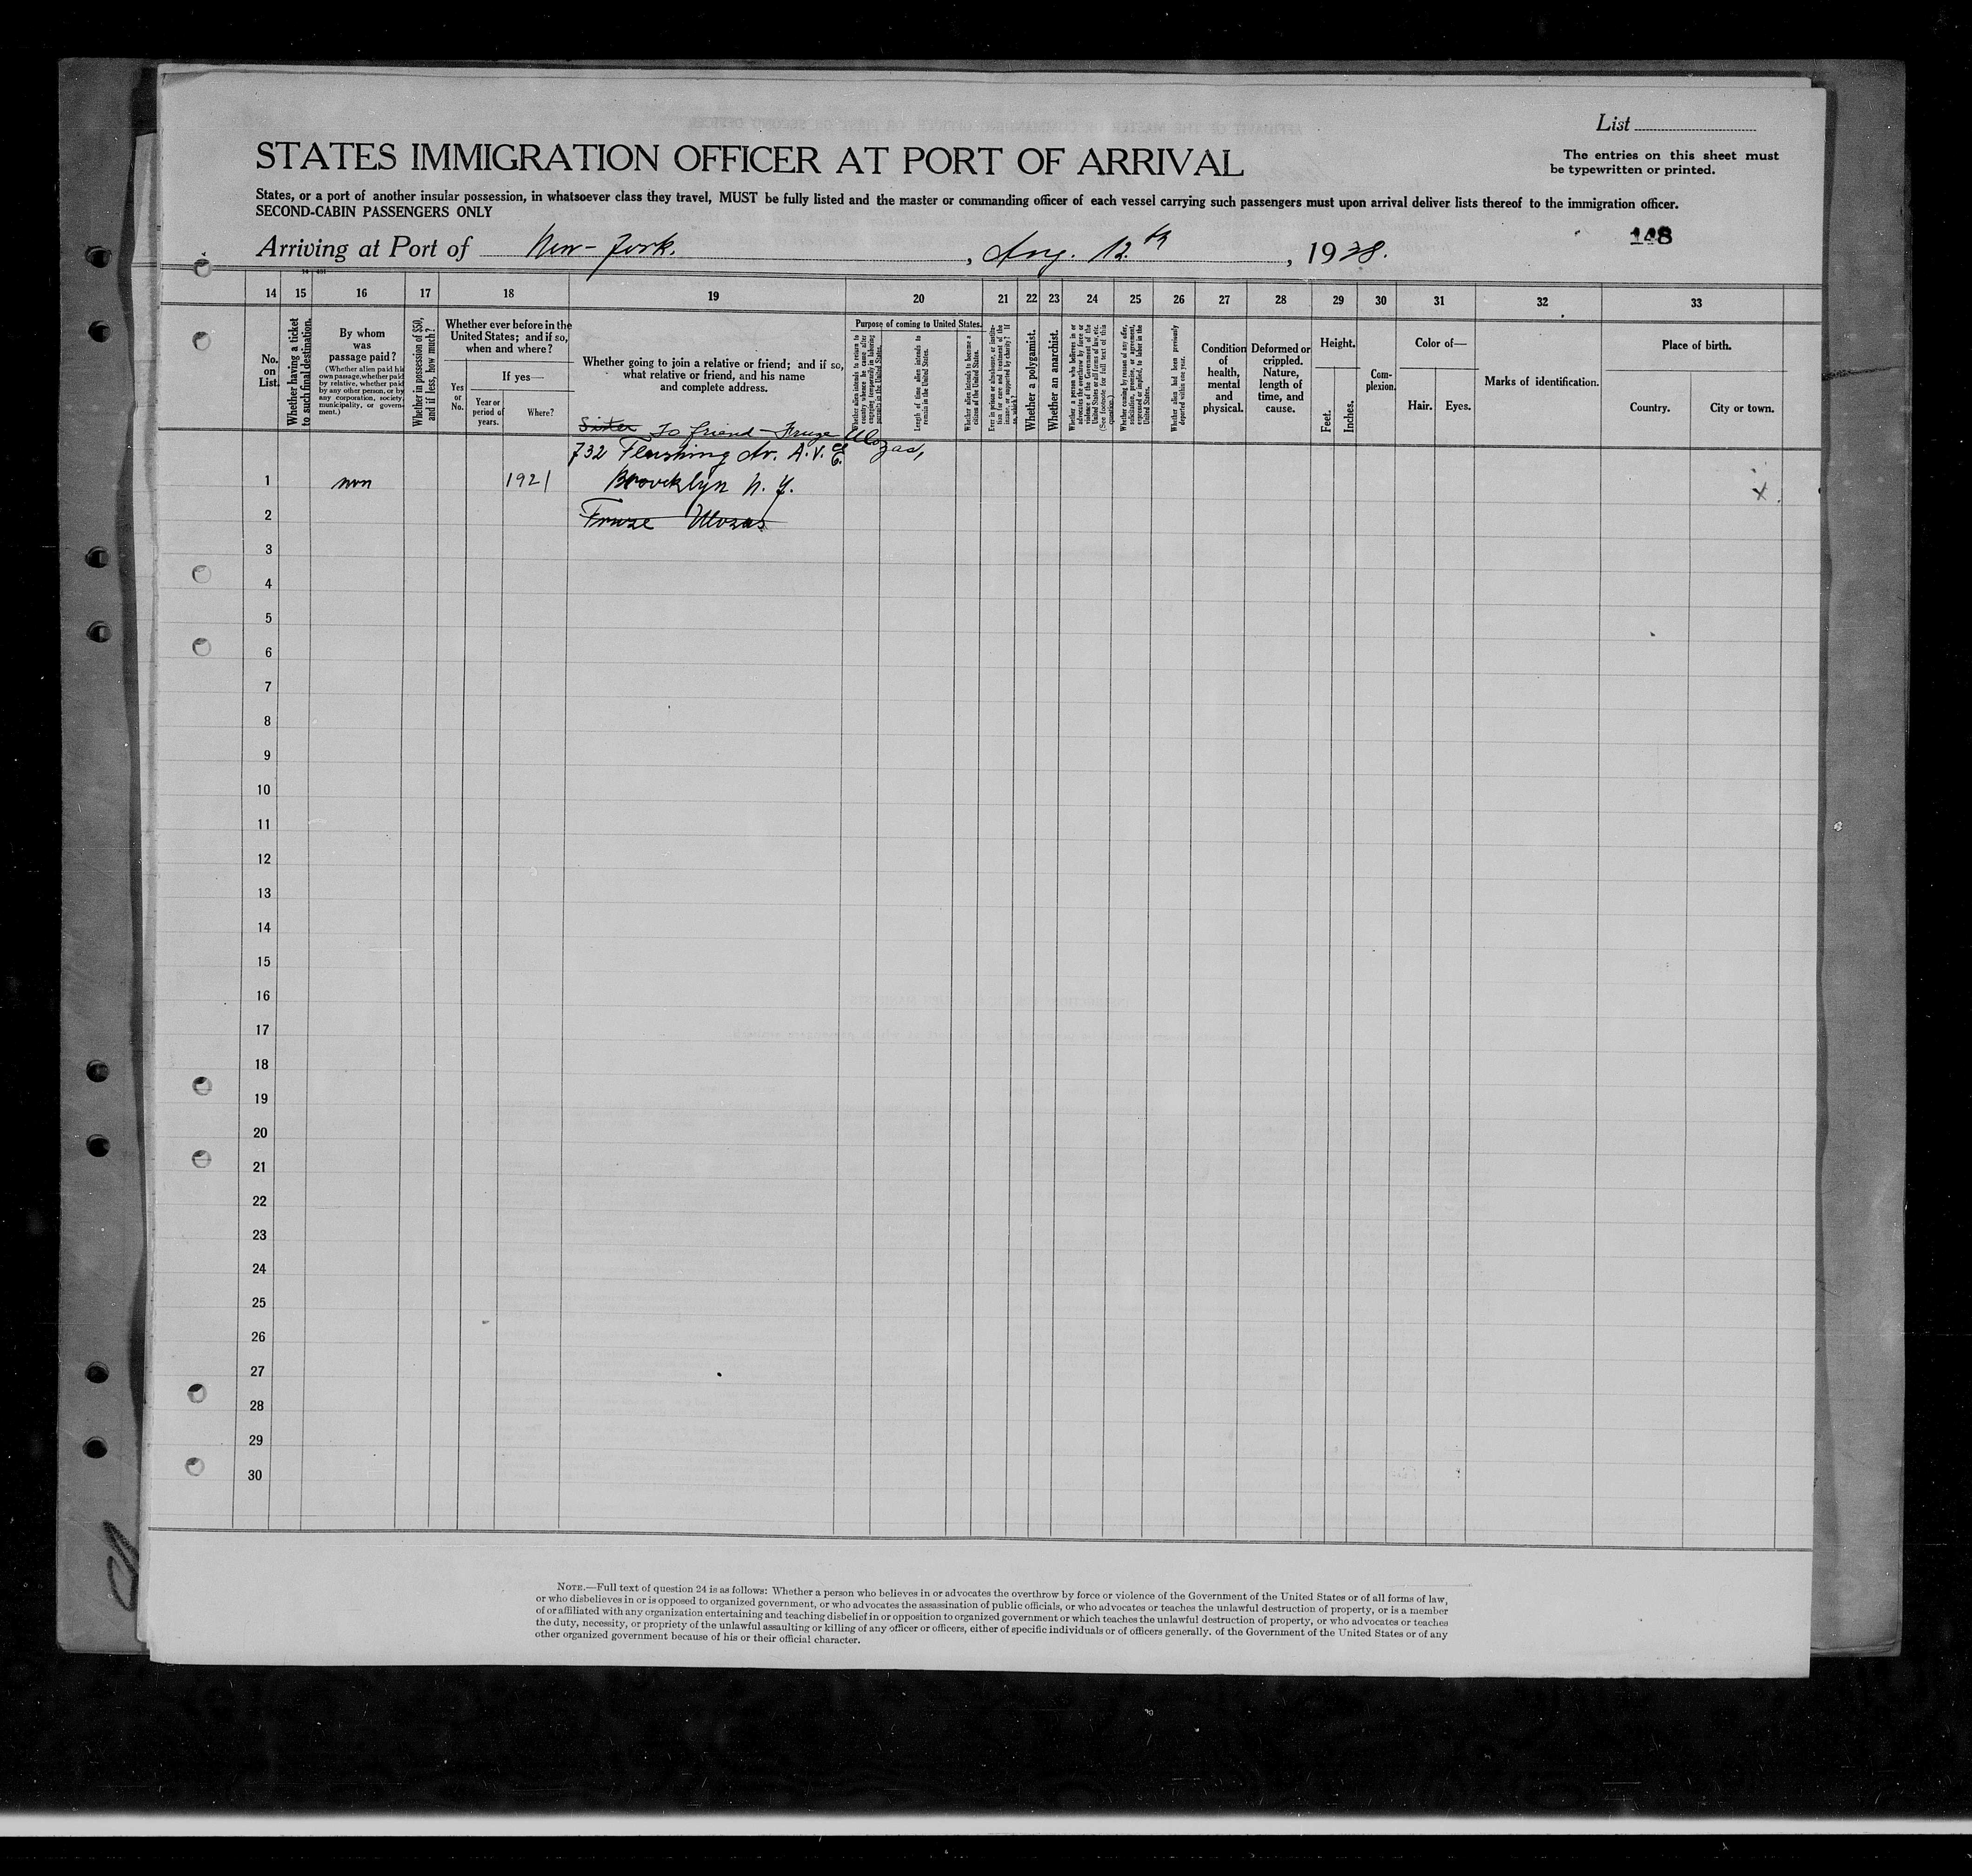 List
STATES IMMIGRATION OFFICER AT PORT OF ARRIVAL
The entries on this sheet must
be typewritten or printed.
States, or a port of another insular possession, in whatsoever class they travel, MUST be fully listed and the master or commanding officer of each vessel carrying such passengers must upon arrival deliver lists thereof to the immigration officer.
SECOND-CABIN PASSENGERS ONLY
148
Arriving at Port of New-York. , Aug. 12th , 1928.
14 15 16 17 18 19 20 21 22 23 24 25 26 27 28 29 30 31 32 33
No.
on
List.
Whether having a ticket
to such final destination.
By whom
was
passage paid?
(Whether alien paid his
own passage, whether paid
by relative, whether paid
by any other person, or by
any corporation, society,
municipality, or govern-
ment.)
Whether in possession of $50,
and if less, how much?
Whether ever before in the
United States; and if so,
when and where?
Yes
or
No.
If yes—
Year or
period of
years.
Where?
Whether going to join a relative or friend; and if so,
what relative or friend, and his name
and complete address.
Purpose of coming to United States.
Whether alien intends to return to
country whence he came after
engaging temporarily in laboring
pursuits in the United States.
Length of time alien intends to
remain in the United States.
Whether alien intends to become a
citizen of the United States.
Ever in prison or almshouse, or institu-
tion for care and treatment of the
insane, or supported by charity? If
so, which?
Whether a polygamist.
Whether an anarchist.
Whether a person who believes in or
advocates the overthrow by force or
violence of the Government of the
United States or all forms of law, etc.
(See footnote for full text of this
question.)
Whether coming by reason of any offer,
solicitation, promise, or agreement,
expressed or implied, to labor in the
United States.
Whether alien had been previously
deported within one year.
Condition
of
health,
mental
and
physical.
Deformed or
crippled.
Nature,
length of
time, and
cause.
Height.
Feet.
Inches.
Com-
plexion.
Color of—
Hair.
Eyes.
Marks of identification.
Place of birth.
Country.
City or town.
Sister To friend - Fruze Ulozas,
732 Flushing Av. A.V.E.
1 1921 Broocklyn N. Y. x
2 Fruze Ulozas
3
4
5
6
7
8
9
10
11
12
13
14
15
16
17
18
19
20
21
22
23
24
25
26
27
28
29
30
NOTE.—Full text of question 24 is as follows: Whether a person who believes in or advocates the overthrow by force or violence of the Government of the United States or of all forms of law,
or who disbelieves in or is opposed to organized government, or who advocates the assassination of public officials, or who advocates or teaches the unlawful destruction of property, or is a member
of or affiliated with any organization entertaining and teaching disbelief in or opposition to organized government or which teaches the unlawful destruction of property, or who advocates or teaches
the duty, necessity, or propriety of the unlawful assaulting or killing of any officer or officers, either of specific individuals or of officers generally, of the Government of the United States or of any
other organized government because of his or their official character.